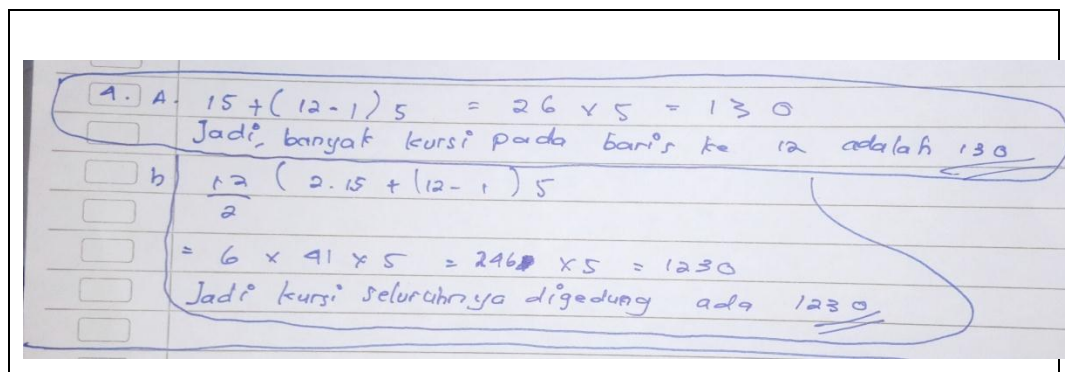 4. A. 15 + ( 12 - 1 ) 5 = 26 x 5 = 130
Jadi, banyak kursi pada baris ke 12 adalah 130
b 12/2 ( 2.15 + (12 - 1 ) 5
= 6 x 41 x 5 = 246 x 5 = 1230
Jadi kursi seluruhnya digedung ada 1230